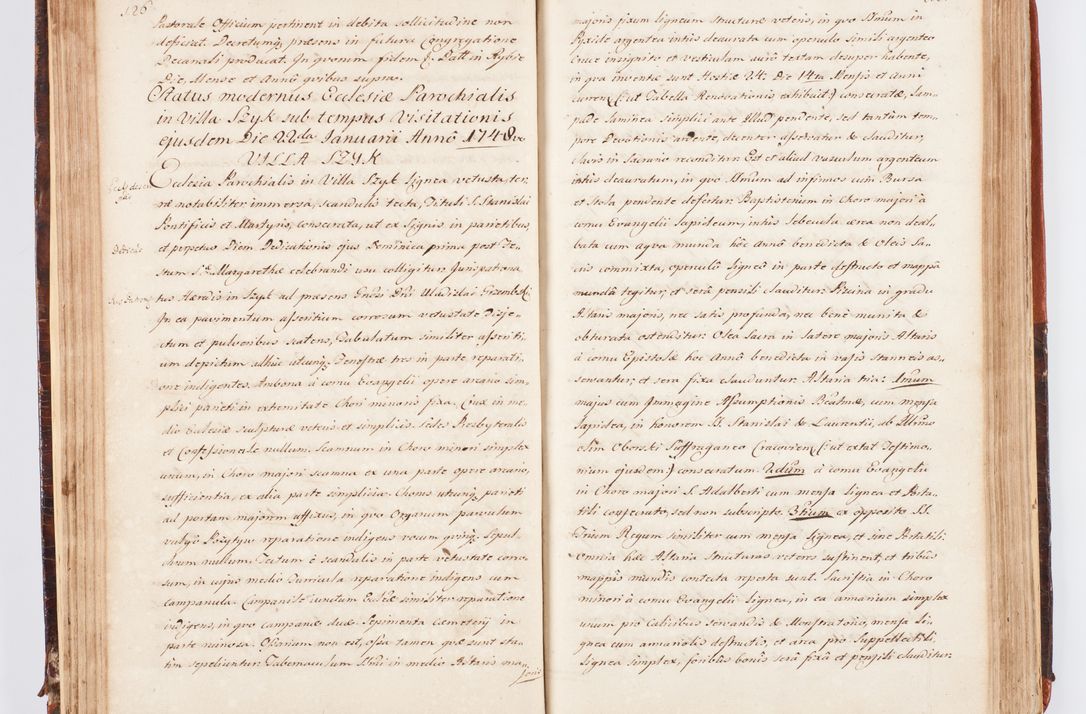 126
Pastorale Officium pertinent in debita sollicitudine non
deficiat. Decretumq; præsens in futura Congregatione
Decanali producat. In quorum fidem &. Datt in Rybie
Die, Mense et Annô quibus supra.
Status modernus Ecclesiæ Parochialis
in Villa Szyk sub tempus Visitationis
ejusdem Die 22da Januarii Annô 1748vo
VILLA SZYK
Ecclesia Parochialis in Villa Szyk lignea vetusta, ter,
ræ notabiliter immersa, scandulis tecta, Tituli S. Stanislai
Pontificis et Martyris, consecrata, ut ex Signis in parietibus,
et perpetuo Diem Dedicationis ejus Dominica prima post Fe,
stum S. Margarethæ celebrandi usu colligitur. Juris patrona
tus Hæredis in Szyk ad præsens Gnosi Dni Uladislai Grzembski.
In ea pavimentum asseritium corrosum vetustate Disje,
ctum et pulveribus scatens, Tabulatum similiter asseriti,
um depictum adhuc utcunq; Fenestræ tres in parte reparati,
one indigentes. Ambona à cornu Evangelii opere arcario sim,
plici parieti in extremitate Chori minoris fixa. Crux in me,
dio Ecclesiæ sculpturæ veteris et simplicis. Sedes Presbyteralis
et Confessionale nullum. Scamnum in Choro minori simplex
unum, in Choro majori scamna ex una parte opere arcario,
sufficientia, ex alia parte simplicia. Chorus utcunq; parieti
ad portam majorem affixus, in quo Organum parvulum
vulgò Pozytyw reparatione indigens vocum
 nullum. Tectum è scandulis in parte vetustate corro,
sum, in cujus medio Turricula reparatione indigens cum
campanula. Campanile junctum Ecclæ similiter reparatione
indigens, in quo campanæ duæ. Sepimenta Cæmeterij in
parte ruinosa. Ossarium non est, ossa tamen quæ sunt sta,
tim sepeliuntur. Tabernaculum SSmi in medio Altaris ma,
joris
majoris fixum ligneum structuræ veteris, in quo SSmum in
Pyxide argentea intus deaurata cum operculo simili argenteo
Cruce insignito et vesticulam aurô textam desuper habente,
in qua inventæ sunt Hostiæ 24. Die 14ta Mensis et anni
curren: (: ut Tabella Renovationis exhibuit :) consecratæ, Lam,
pade laminea simplici ante Illud pendente, sed tantum tem,
pore Devotionis ardente, decenter asservatur & clauditur,
clavis in Sacrario reconditur. Est et aliud vasculum argenteum
intus deauratum, in quo SSmum ad infirmos cum Bursa
et Stola pendente defertur. Baptisterium in Choro majori à
cornu Evangelii lapideum, intus lebecula ærea non deal,
bata cum aqua munda hôc Annô benedicta & Oleis Sa,
cris commixta, operculô ligneô in parte destructo et mappâ
mundâ tegitur, et serâ pensili clauditur. Piscina in gradu
Altaris majoris, nec satis profunda, nec benè munita &
obturata ostenditur. Olea Sacra in latere majoris Altaris
à cornu Epistolæ hoc Annô benedicta in vasis stanneis as,
servantur, et sera fixa clauduntur. Altaria tria: Imum
majus cum Immagine Assumptionis Beatmæ, cum mensa
lapidea, in honorem SS. Stanislai & Laurentii, ab Illmo
olim Oborski Suffraganeo Cracovien: (: ut extat Testimo,
nium ejusdem :) consecratum. 2dum à cornu Evangelii
in Choro majori S. Adalberti cum mensa lignea et Porta,
tili consecrato, sed non subscripto. 3tium ex opposito SS.
Trium Regum similiter cum mensa lignea, et sine Portatili.
Omnia hæc Altaria Structuras veteres sustinent, et tribus
mappis mundis contecta reperta sunt. Sacristia in Choro
minori à cornu Evangelii lignea, in ea armarium simplex
unum pro Calicibus servandis & Monstratorio, mensa li,
gnea cum armariolis destructis, et arca pro suppellectili
lignea simplex, foribus bonis serâ fixâ et pensili clauditur.